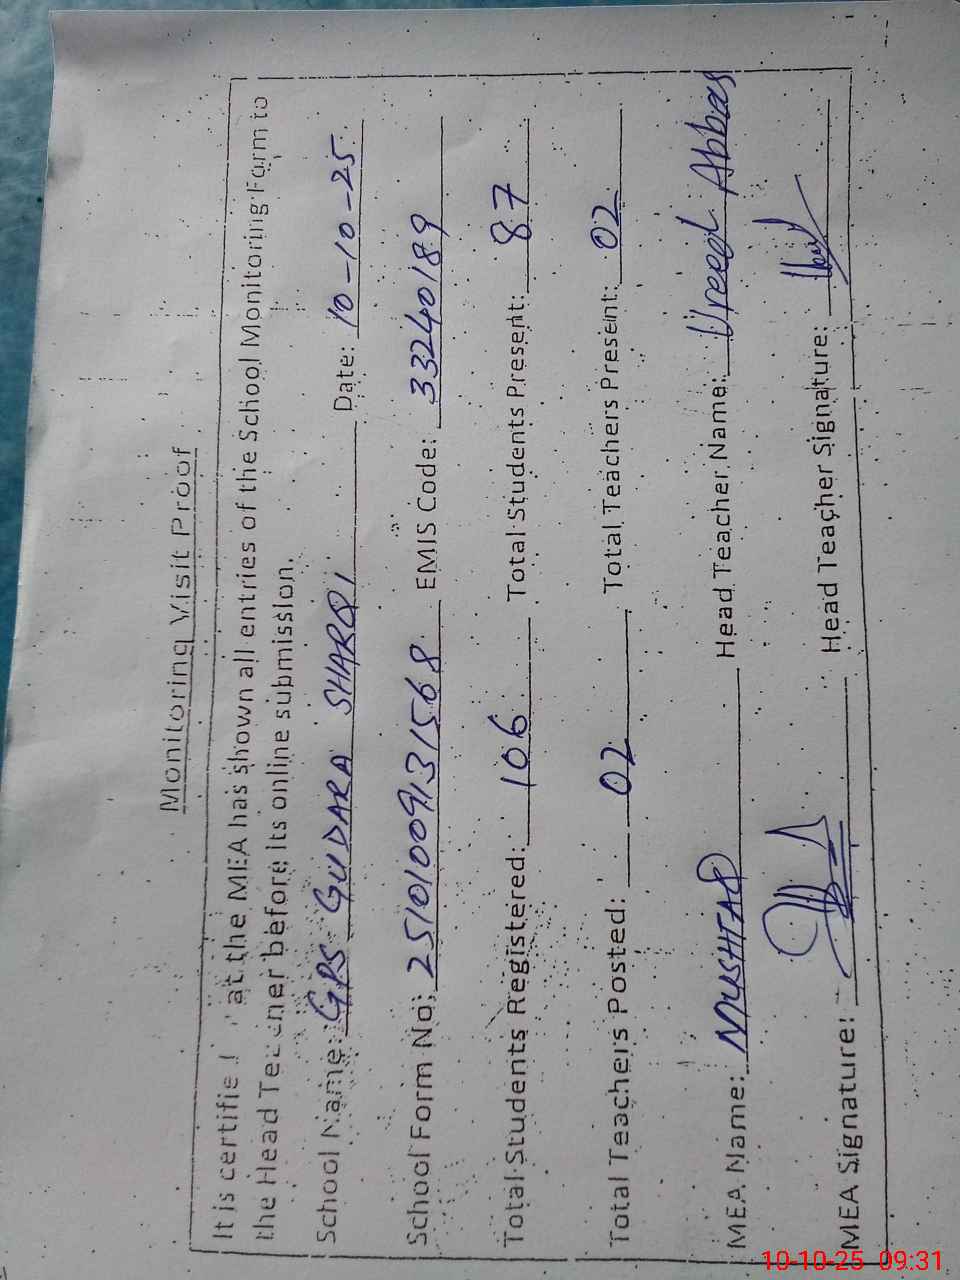 Monitoring Visit Proof
It is certifie at the MEA has shown all entries of the School Monitoring Form to
the Head Teacher before its online submission.
School Name: GPS GUDARA SHARQI Date: 10-10-25
School Form No: 25101009131568 EMIS Code: 33240189
Total Students Registered: 106 Total Students Present: 87
Total Teachers Posted: 02 Total Teachers Present: 02
MEA Name: MUSHTAQ Head Teacher Name: Abbas
MEA Signature: Head Teacher Signature:
10-10-25 09:31